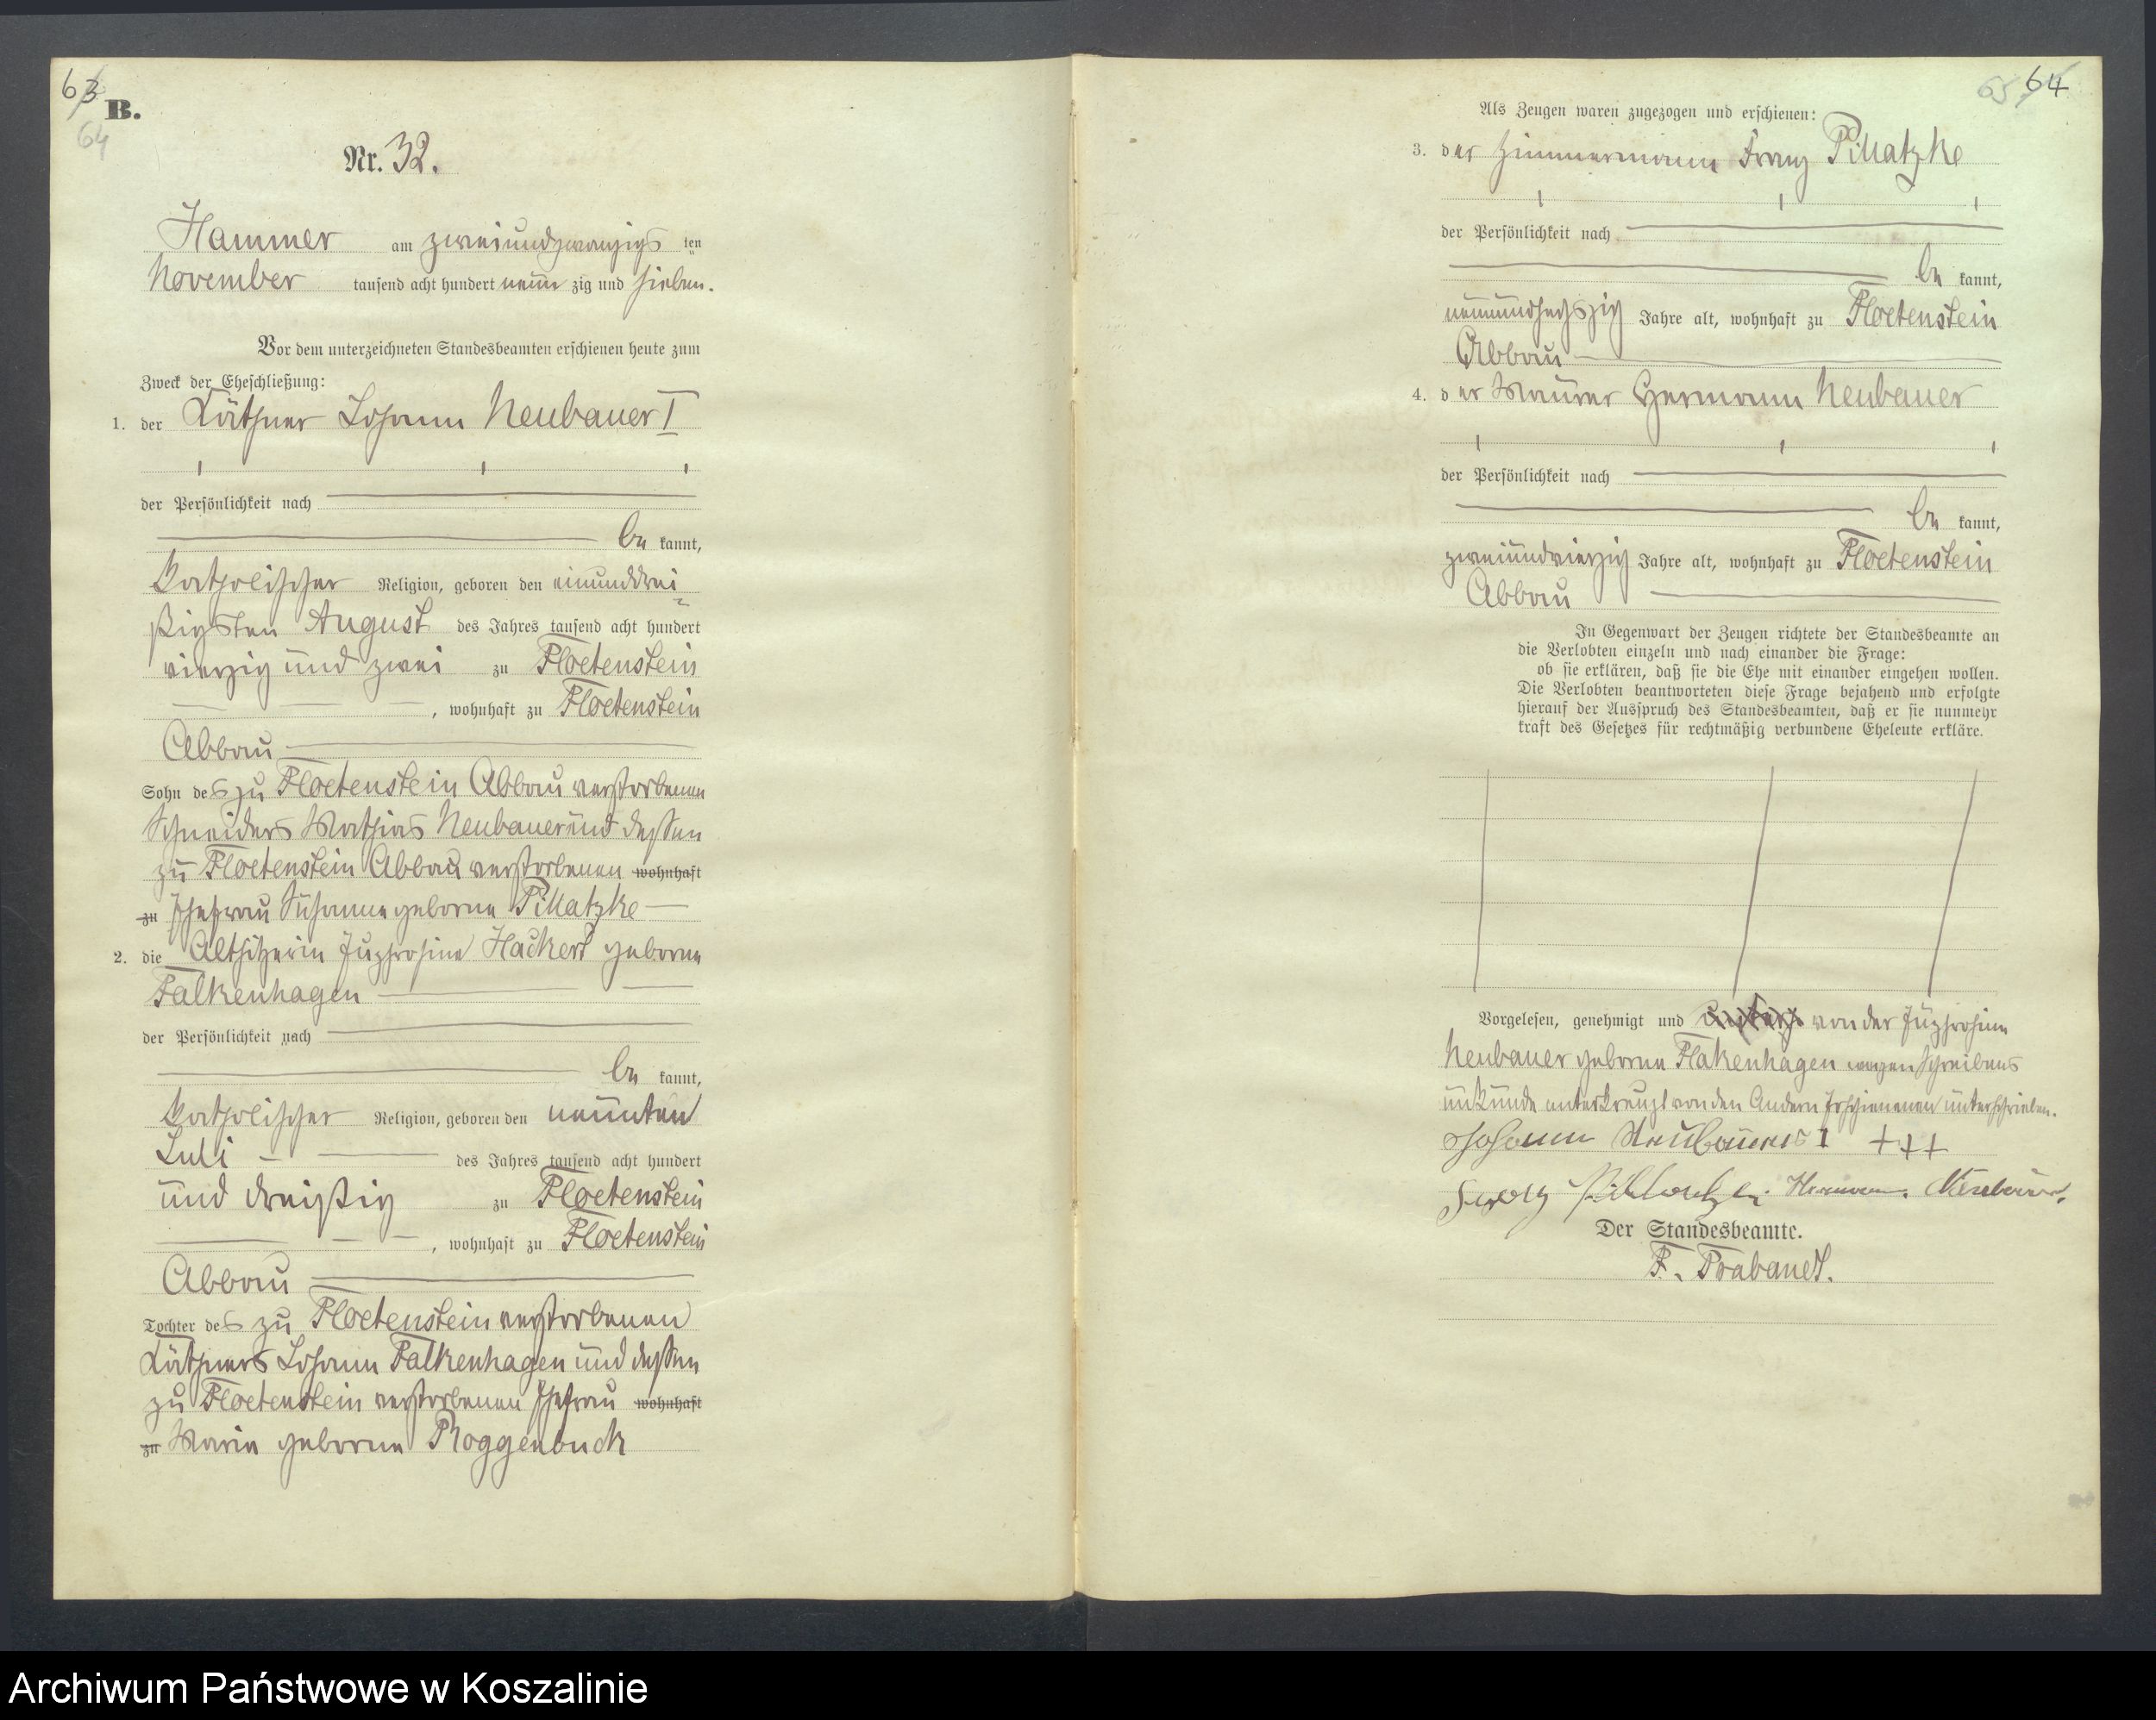 63
B.
64
Nr. 32.
Hammer am zweiundzwanzigs ten
November tausend acht hundert neun zig und sieben.
Vor dem unterzeichneten Standesbeamten erschienen heute zum
Zweck der Eheschließung:
1. der Käthner Johann Neubauer I
der Persönlichkeit nach
be kannt,
katholischer Religion, geboren den einunddrei
ßigsten August des Jahres tausend acht hundert
vierzig und zwei zu Floetenstein
, wohnhaft zu Floetenstein
Abbau
Sohn des zu Floetenstein Abbau verstorbenen
Schneiders Mathias Neubauer und dessen
zu Floetenstein Abbau verstorbenen wohnhaft
zu Ehefrau Susanna geborne Pillatzke
2. die Altsitzerin Euphrosine Hackert geborne
Falkenhagen
der Persönlichkeit nach
be kannt,
katholischer Religion, geboren den neunten
Juli des Jahres tausend acht hundert
und dreißig zu Floetenstein
, wohnhaft zu Floetenstein
Abbau
Tochter des zu Floetenstein verstorbenen
Käthners Johann Falkenhagen und dessen
zu Floetenstein verstorbenen Ehefrau wohnhaft
zu Maria geborne Roggenbuck
65 64
Als Zeugen waren zugezogen und erschienen:
3. der Zimmermann Franz Pillatzke
der Persönlichkeit nach
be kannt,
neunundsechszig Jahre alt, wohnhaft zu Floetenstein
Abbau
4. der Maurer Hermann Neubauer
der Persönlichkeit nach
be kannt,
zweiundvierzig Jahre alt, wohnhaft zu Floetenstein
Abbau
In Gegenwart der Zeugen richtete der Standesbeamte an
die Verlobten einzeln und nach einander die Frage:
ob sie erklären, daß sie die Ehe mit einander eingehen wollen.
Die Verlobten beantworteten diese Frage bejahend und erfolgte
hierauf der Ausspruch des Standesbeamten, daß er sie nunmehr
kraft des Gesetzes für rechtmäßig verbundene Eheleute erkläre.
Vorgelesen, genehmigt und von der Euphrosine
Neubauer geborne Flakenhagen wegen Schreibens
unkunde unterkreuzt von den Andern Erschienenen unterschrieben.
Johann Neubauer I +++
Franz Pillatzke Hermann Neubauer.
Der Standesbeamte.
F. Trabandt.
Archiwum Państwowe w Koszalinie